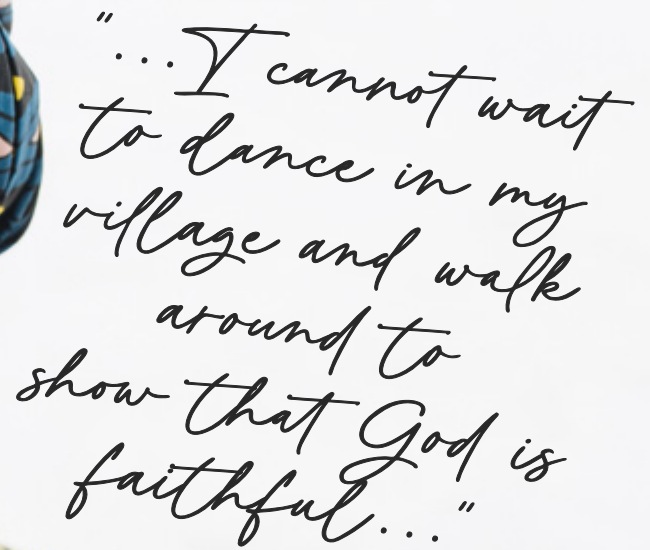 "...I cannot wait
to dance in my
village and walk
around to
show that God is
faithful..."